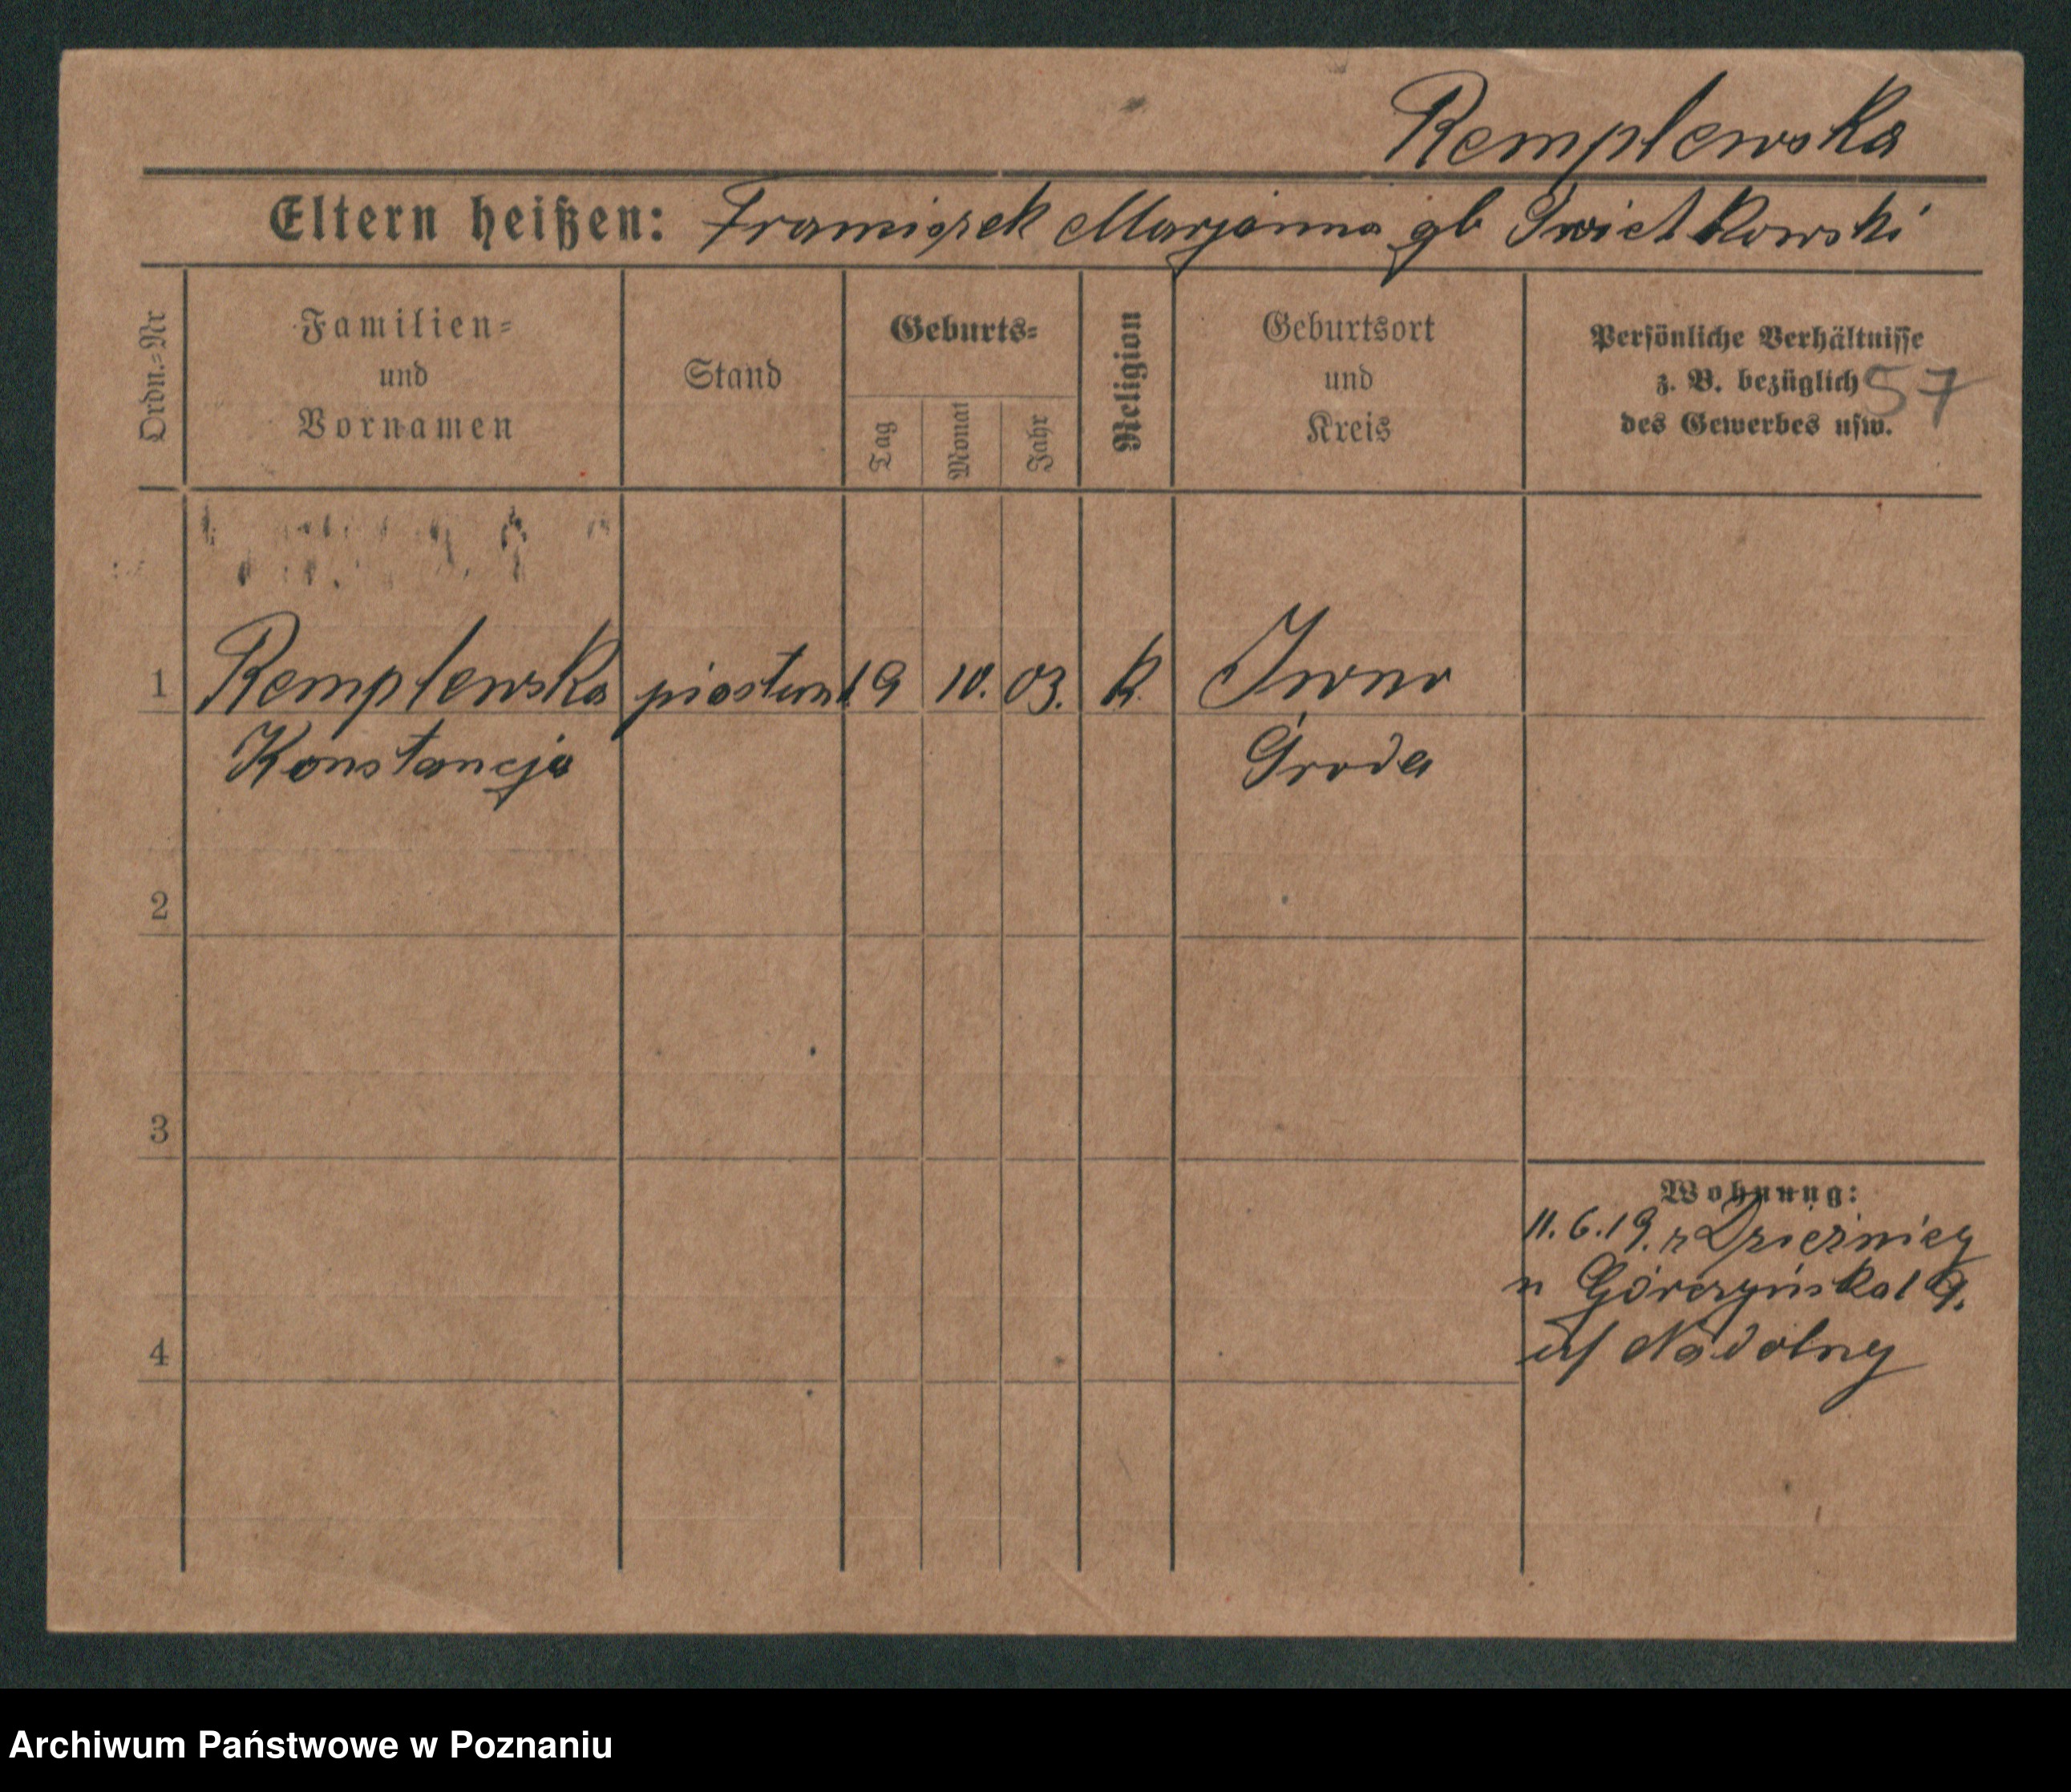 Remplewska
Eltern heißen: Franciszek Marjanna gb Swietkowski
Ordn.=Nr
Familien=
und
Vornamen
Stand
Geburts=
Tag
Monat
Jahr
Religion
Geburtsort
und
Kreis
Persönliche Verhältnisse
z. B. bezüglich
des Gewerbes usw.
57
1 Remplewska piastun 19 10. 03. K. Iwno
Konstancja Sroda
2
3
4
Wohnung:
11.6.19. z Dzieznicy
n Górczyńska 19.
Nadolny
Archiwum Państwowe w Poznaniu